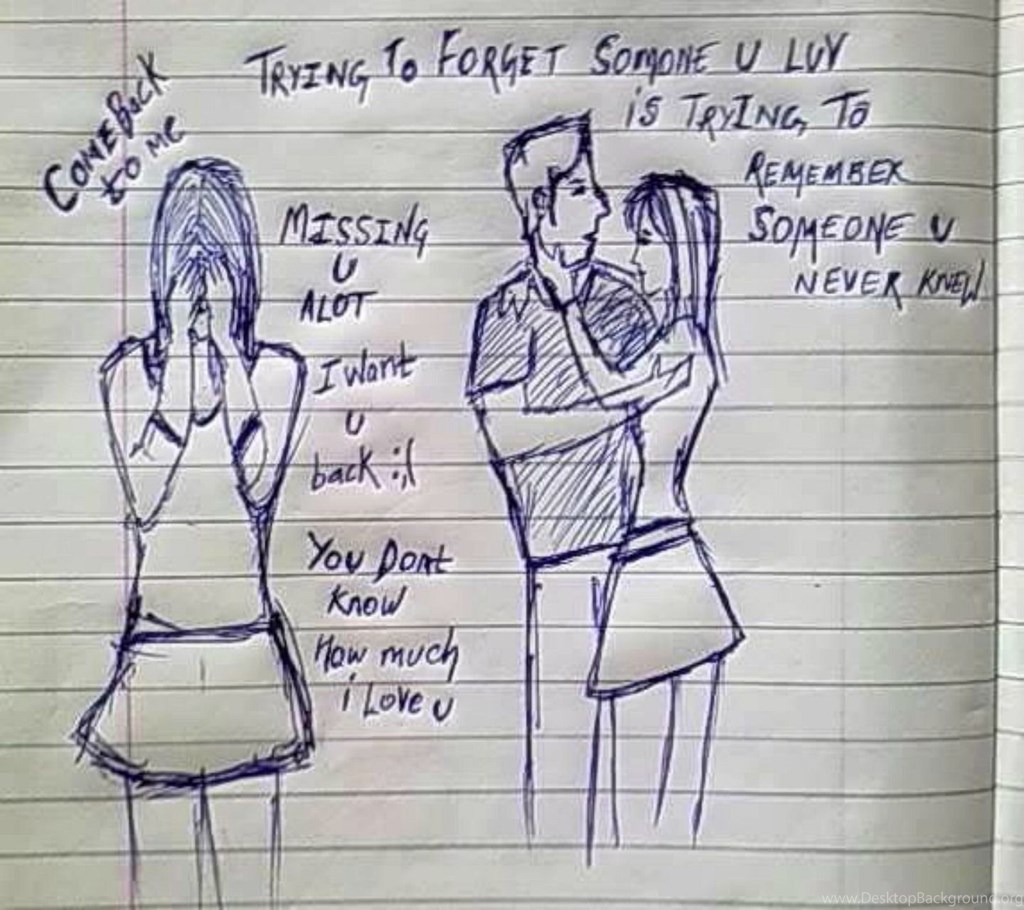 TRYING TO FORGET SOMONE U LUV
iS TRYING TO
REMEMBER
SOMEONE U
NEVER KNEW
COME BACK
to ME
MISSING
U
ALOT
I Want
U
back :,(
YOU DONt
KNOW
How much
i LOVE U
www.DesktopBackground.org